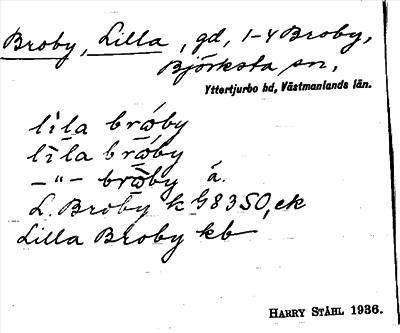 Broby, Lilla, gd, 1-4 Broby,
Björksta sn,
Yttertjurbo hd, Västmanlands län.
li̇̀la brω̄́by
lī̀la brω̄́by
—"— brω̄̀by á.
L. Broby k G83SO, ek
Lilla Broby kb
HARRY STÅHL 1936.